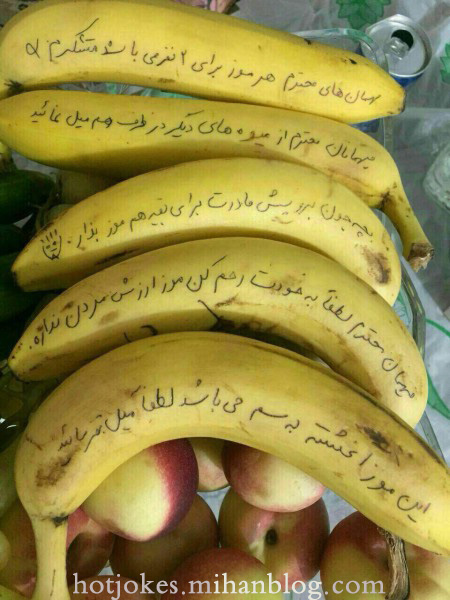 مهمان های محترم هر موز برای ۲ نفر می باشد متشکرم
میهمانان محترم از میوه های دیگر در ظرف هم میل نمائید
بچه جون برو پیش مادرت برای بقیه هم موز بذار.
میهمان محترم لطفاً به خودت رحم کن موز ارزش مردن نداره.
این موز آغشته به سم می باشد لطفا میل نفرمائید
hotjokes.mihanblog.com